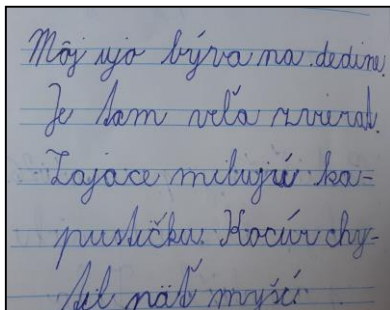 Môj ujo býva na dedine.
Je tam veľa zvierat.
Zajace milujú ka=
pustičku. Kocúr chy=
til päť myší.